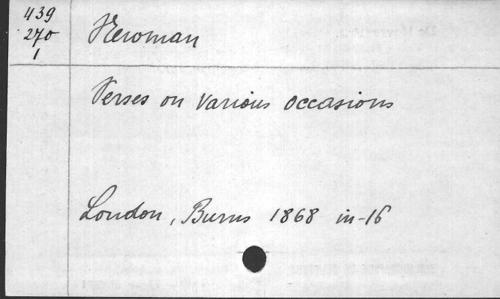 439
270
1
Newman
Verses on various occasions
London, Burns 1868 in-16